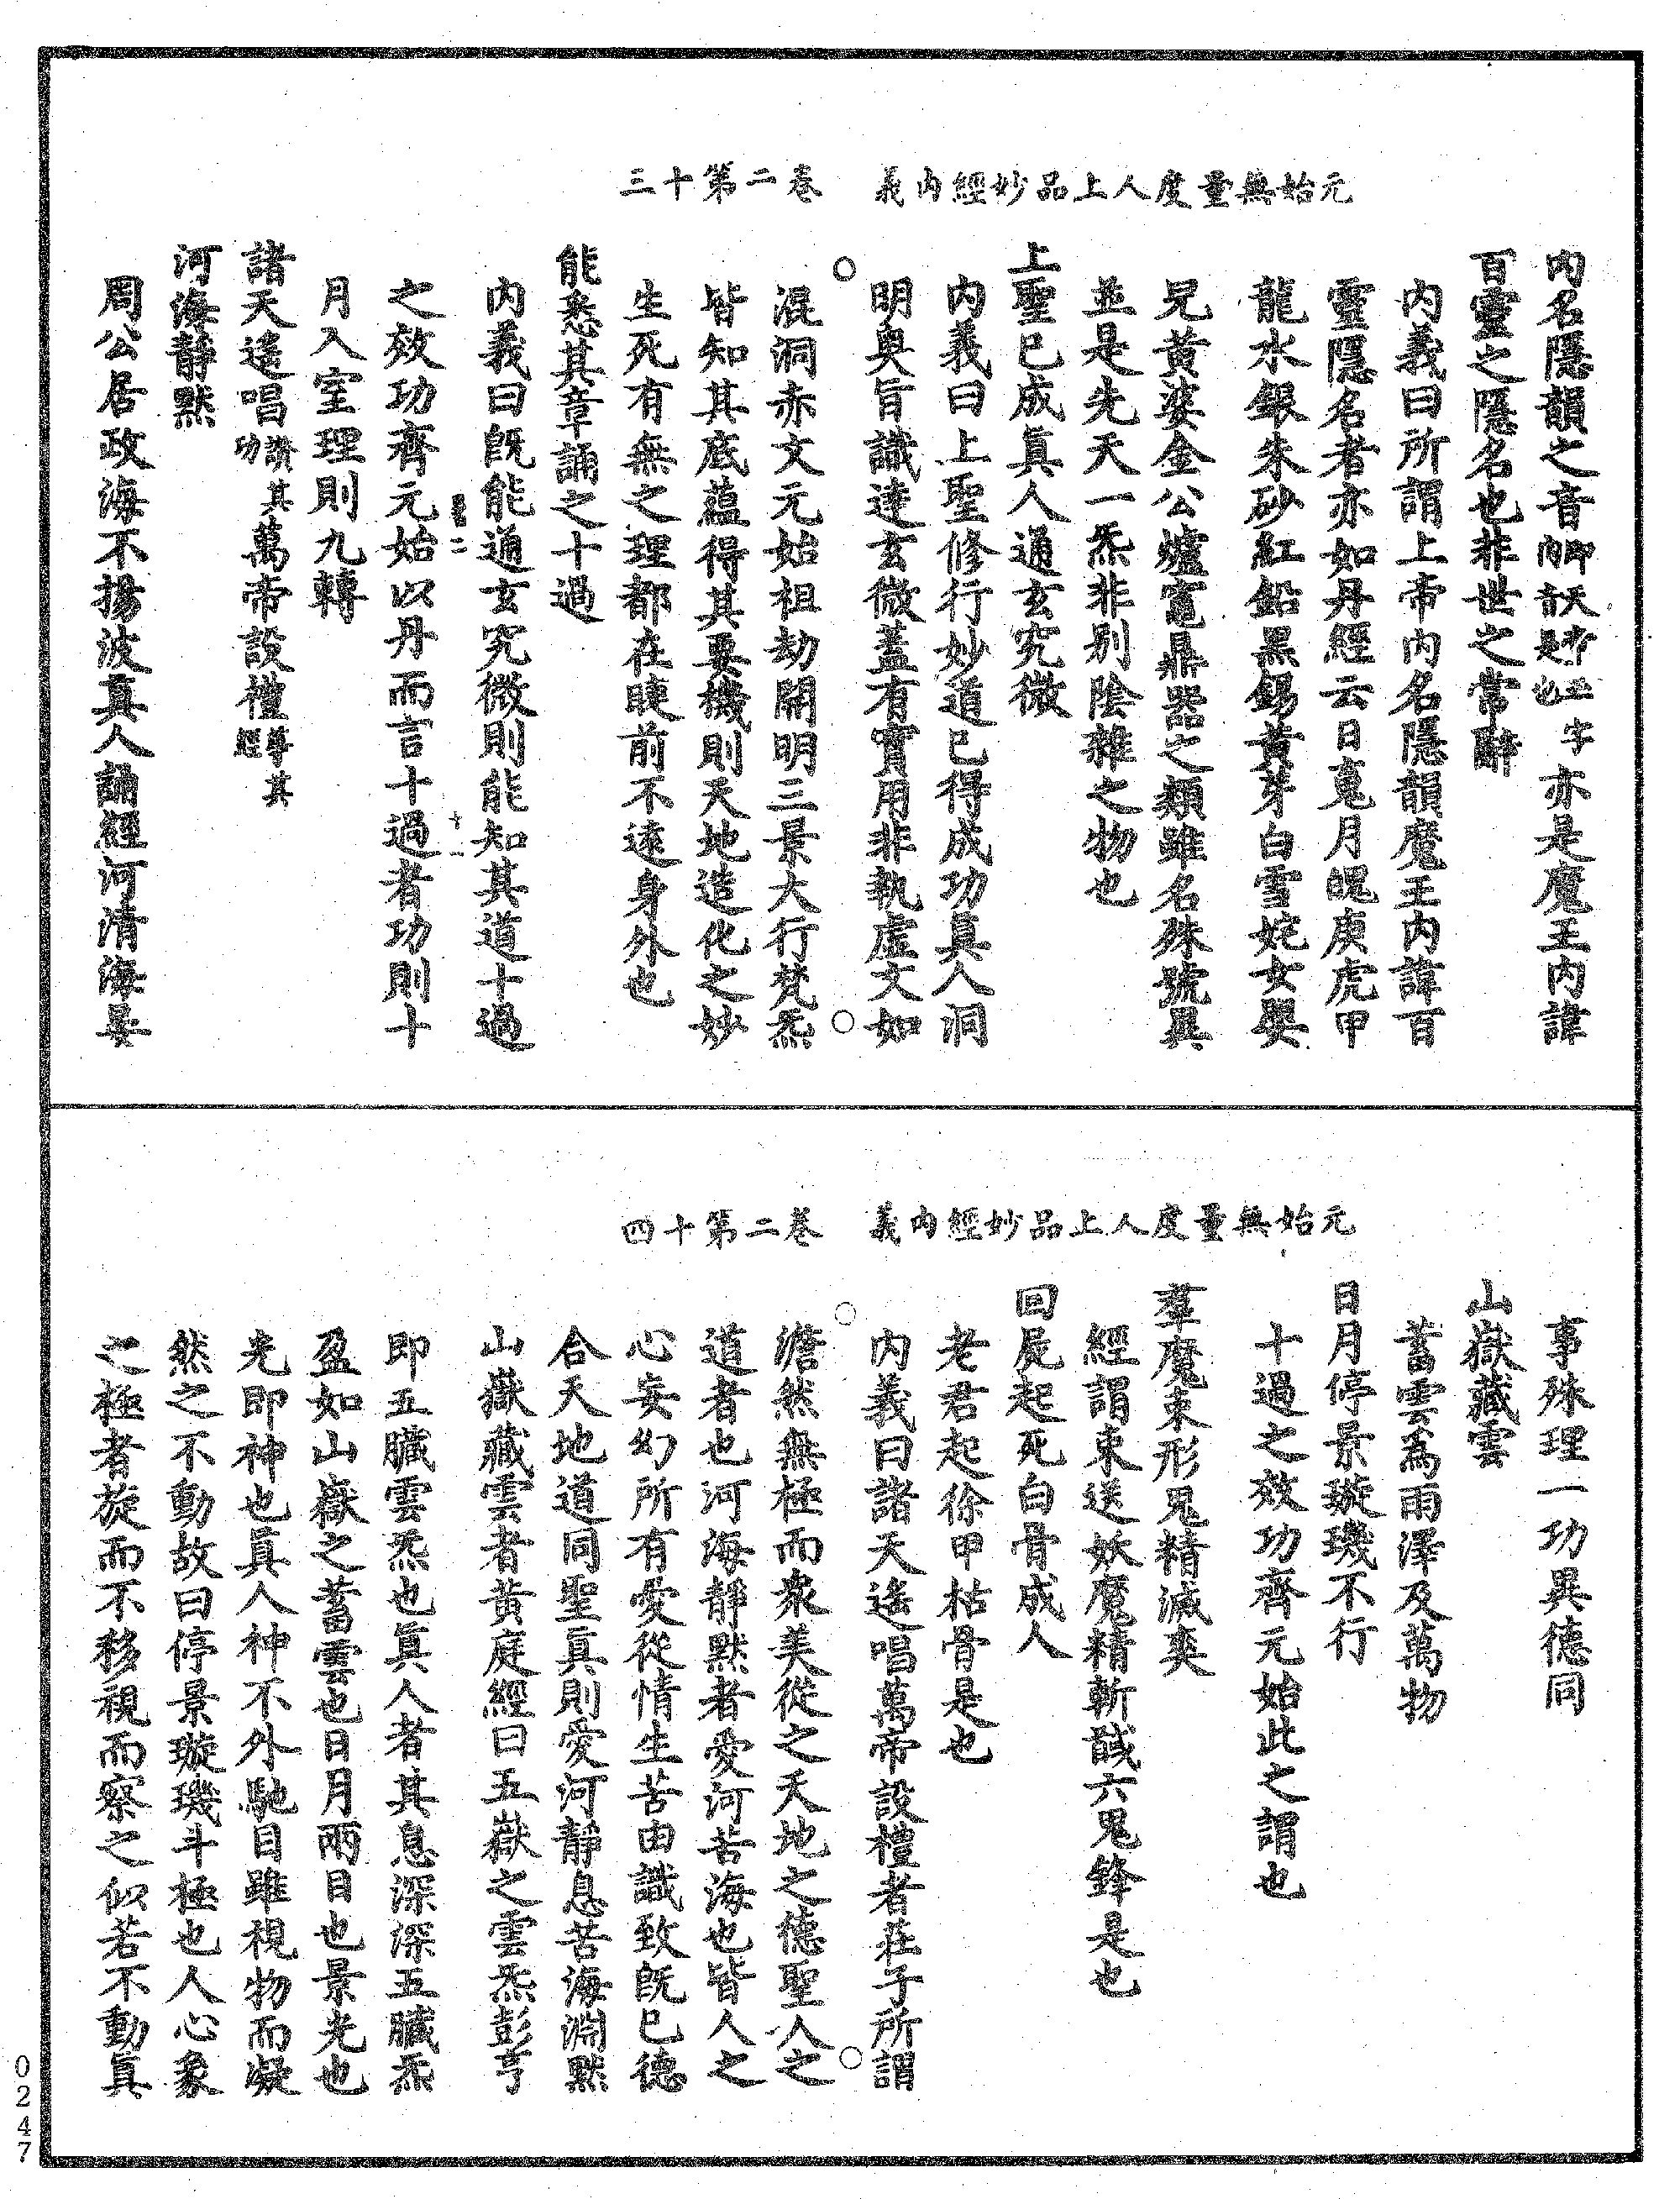 元始無量度人上品妙經內義　卷二第十三
內名隱韻之音卽諸天中是也三字亦是魔王內諱
百靈之隱名也非世之常辭
內義曰所謂上帝內名隱韻魔王內諱百
靈隱名者亦如丹經云日䰟月魄庚虎甲
龍水銀朱砂紅鉛黑錫黃芽白雪姹女嬰
兒黃婆金公爐竈鼎器之類雖名殊號異
並是先天一炁非別陰雜之物也
上聖已成眞人通玄究微
內義曰上聖修行妙道已得成功眞人洞
明奧旨識達玄微蓋有實用非執虛文如
混洞赤文元始祖劫開明三景大行梵炁
皆知其底蘊得其要機則天地造化之妙
生死有無之理都在睫前不遠身外也
能悉其章誦之十過
內義曰旣能通玄究微則能知其道十過
之效功齊元始以丹而言十過者功則十
月入室理則九轉
諸天遙唱讚其功萬帝設禮尊其經
河海靜默
周公居政海不揚波眞人誦經河清海晏
元始無量度人上品妙經內義　卷二第十四
事殊理一功異德同
山嶽藏雲
蓄雲爲雨澤及萬物
日月停景璇璣不行
十過之效功齊元始此之謂也
羣魔束形鬼精滅爽
經謂束送妖魔精斬馘六鬼鋒是也
回屍起死白骨成人
老君起徐甲枯骨是也
內義曰諸天遙唱萬帝設禮者莊子所謂
澹然無極而衆美從之天地之德聖人之
道者也河海靜默者愛河苦海也皆人之
心妄幻所有愛從情生苦由識致旣已德
合天地道同聖眞則愛河靜息苦海淵默
山嶽藏雲者黃庭經曰五嶽之雲炁彭亨
即五臟雲炁也眞人者其息深深五臟炁
盈如山嶽之蓄雲也日月兩目也景光也
光即神也眞人神不外馳目雖視物而凝
然之不動故曰停景璇璣斗極也人心象
之極者旋而不移視而察之似若不動眞
0247